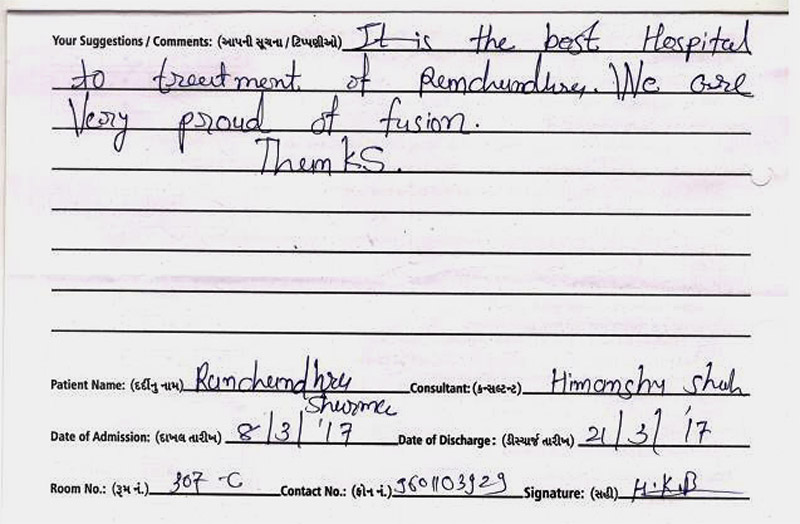 Your Suggestions / Comments: (આપની સૂચના / ટિપ્પણીઓ) It is the best Hospital
to treatment of Ramchandhra. We are
Very proud of fusion.
Thanks.
Patient Name: (દર્દીનું નામ) Ramchandhra Sharma Consultant: (કન્સલ્ટન્ટ) Himanshu Shah
Date of Admission: (દાખલ તારીખ) 8/3/'17 Date of Discharge: (ડીસ્ચાર્જ તારીખ) 21/3/'17
Room No.: (રૂમ નં.) 307-C Contact No.: (ફોન નં.) 9601103929 Signature: (સહી) H.K.B